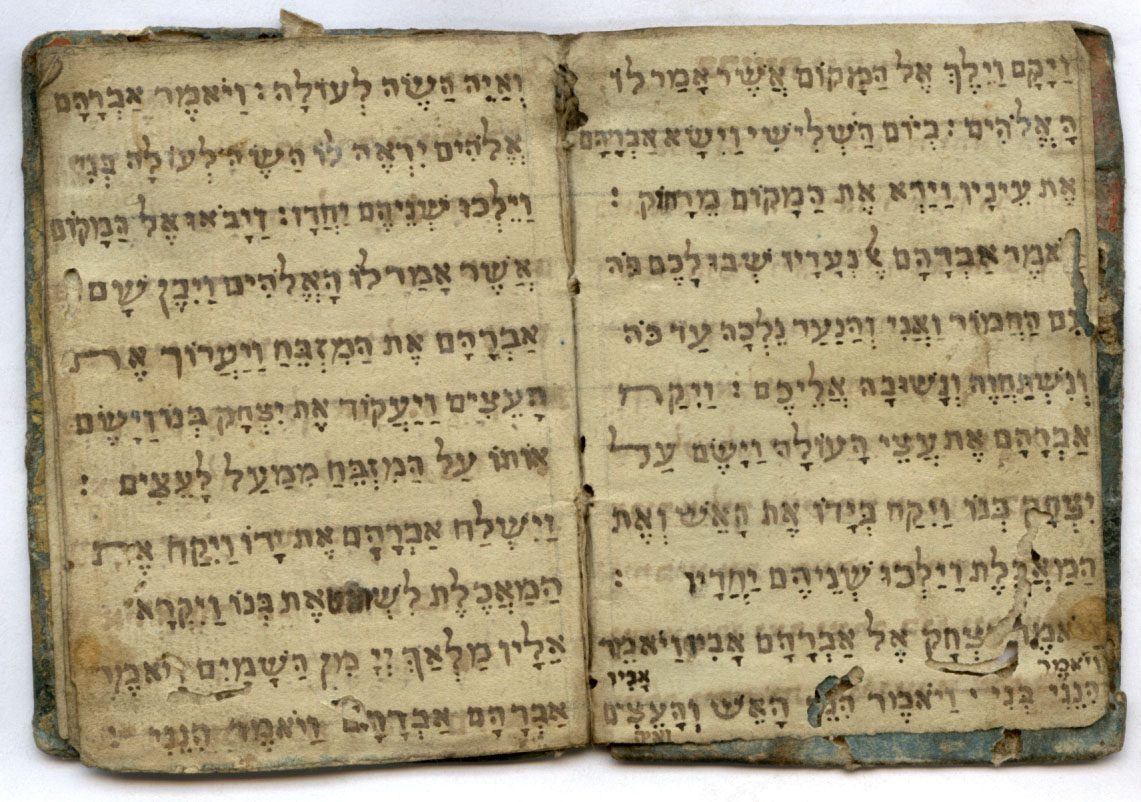 וַיָקָם וַיֵלֶךְ אֶל הַמָקוֹם אֲשֶר אָמַר לוֹ
הָאֱלֹהִים : בַיוֹם הַשְלִישִי וַיִשָא אַבְרָהָם
אֶת עֵינָיו וַיַרְא אֶת הַמָקוֹם מֵרָחוֹק :
אַבְרָהָם לִנְעָרָיו שְבוּ לָכֶם פֹה
הַחֲמוֹר וַאֲנִי וְהַנַעַר נֵלְכָה עַד כֹה
וְנִשְתַחֲוֶה וְנָשוּבָה אֲלֵיכֶם : וַיִקַח
אַבְרָהָם אֶת עֲצֵי הָעוֹלָה וַיָשֶם עַל
יִצְחָק בְנוֹ וַיִקַח בְיָדוֹ אֶת הָאֵש וְאֶת
הַמַאֲכֶלֶת וַיֵלְכוּ שְנֵיהֶם יַחְדָיו :
יִצְחָק אֶל אַבְרָהָם אָבִיו וַיֹאמֶר
אָבִיו וַיֹאמֶר
הִנֶנִי בְנִי וַיֹאמֶר הִנֵה הָאֵש וְהָעֵצִים
וְאַיֵה
וְאַיֵה הַשֶה לְעוֹלָה : וַיֹאמֶר אַבְרָהָם
אֱלֹהִים יִרְאֶה לוֹ הַשֶה לְעוֹלָה בְנִי
וַיֵלְכוּ שְנֵיהֶם יַחְדָו : וַיָבֹאוּ אֶל הַמָקוֹם
אֲשֶר אָמַר לוֹ הָאֱלֹהִים וַיִבֶן שָם
אַבְרָהָם אֶת הַמִזְבֵחַ וַיַעֲרוֹךְ אֶת
הָעֵצִים וַיַעֲקוֹד אֶת יִצְחָק בְנוֹ וַיָשֶם
אוֹתוֹ עַל הַמִזְבֵחַ מִמַעַל לָעֵצִים :
וַיִשְלַח אַבְרָהָם אֶת יָדוֹ וַיִקַח אֶת
הַמַאֲכֶלֶת לִשְחוֹט אֶת בְנוֹ וַיִקְרָא
אֵלָיו מַלְאַךְ יְיָ מִן הַשָמַיִם וַיֹאמֶר
אַבְרָהָם אַבְרָהָם וַיֹאמֶר הִנֵנִי :